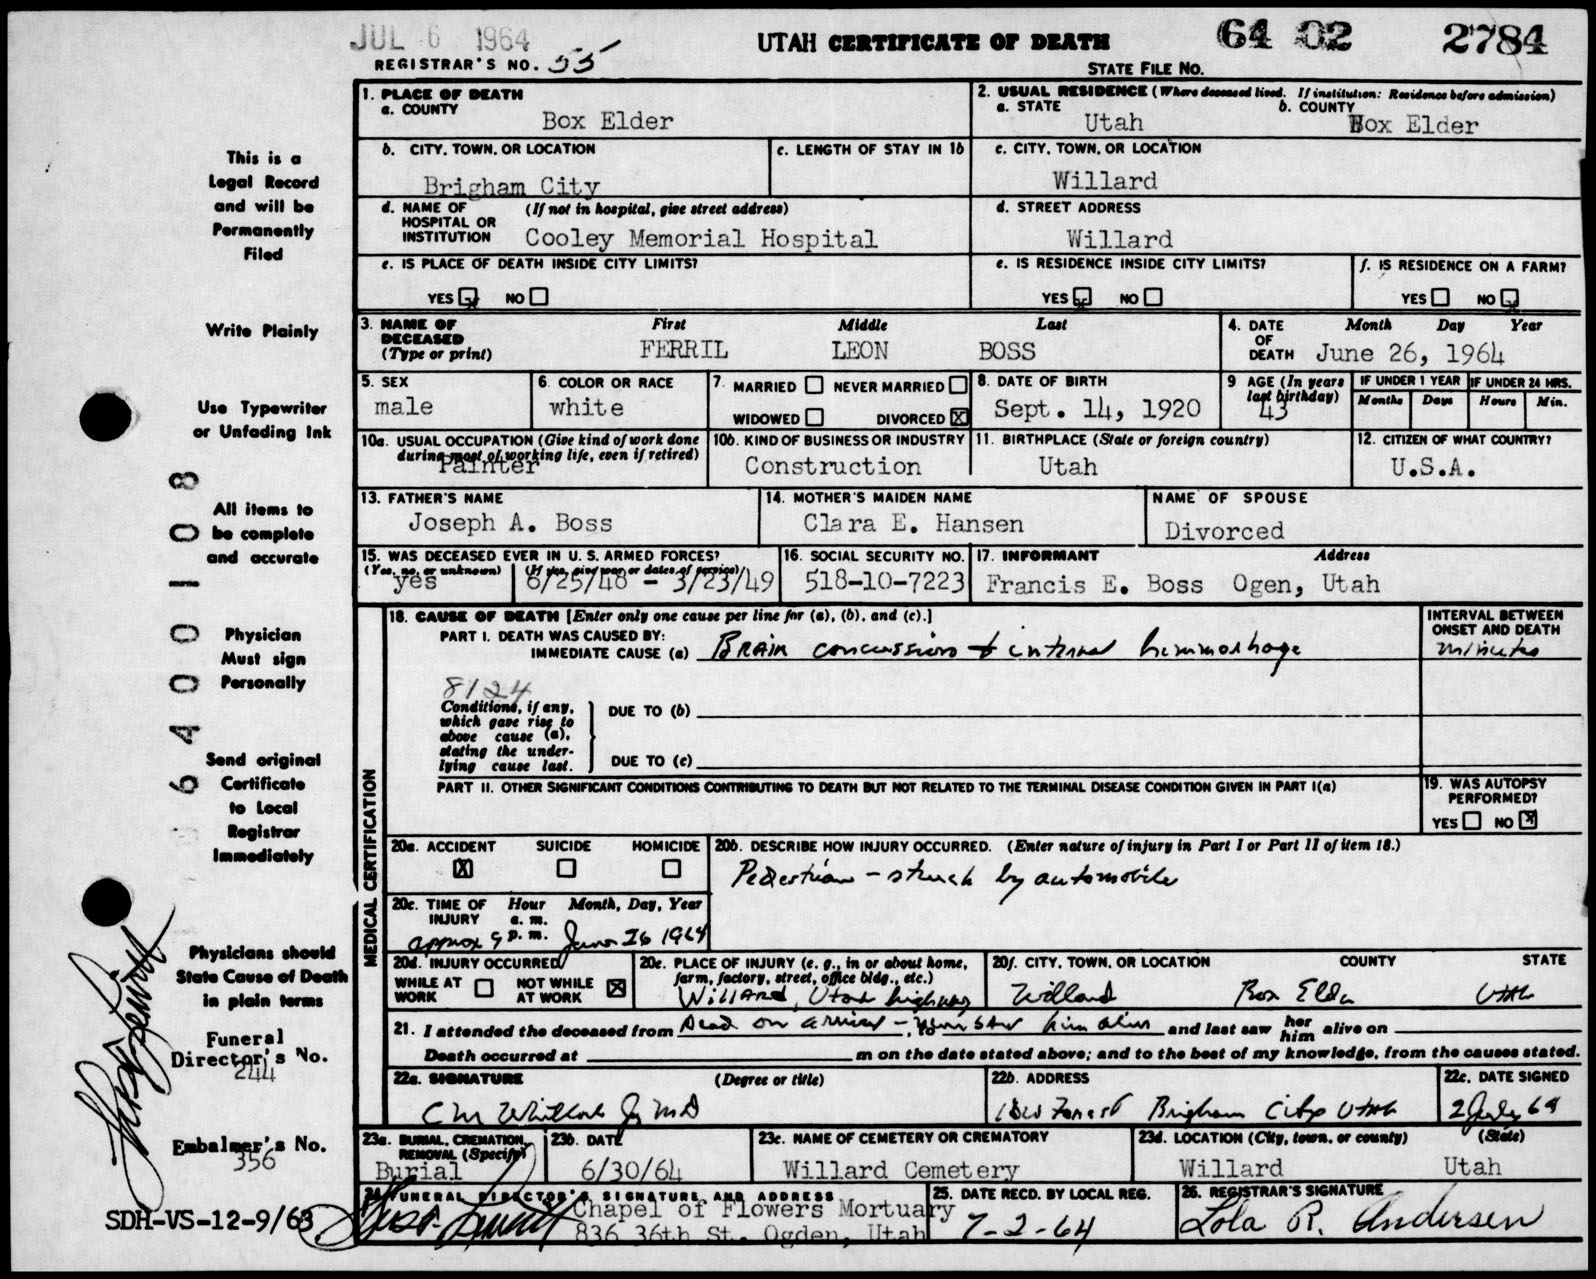 JUL 6 1964
REGISTRAR'S NO. 55
UTAH CERTIFICATE OF DEATH
64 02 2784
STATE FILE NO.
This is a
Legal Record
and will be
Permanently
Filed
Write Plainly
Use Typewriter
or Unfading Ink
All items to
be complete
and accurate
Physician
Must sign
Personally
Send original
Certificate
to Local
Registrar
Immediately
Physicians should
State Cause of Death
in plain terms
Funeral
Director's No.
244
Embalmer's No.
356
SDH-VS-12-9/63
6400108
1. PLACE OF DEATH
a. COUNTY
Box Elder
2. USUAL RESIDENCE (Where deceased lived. If institution: Residence before admission)
a. STATE b. COUNTY
Utah Box Elder
b. CITY, TOWN, OR LOCATION
Brigham City
c. LENGTH OF STAY IN 1b
c. CITY, TOWN, OR LOCATION
Willard
d. NAME OF HOSPITAL OR INSTITUTION (If not in hospital, give street address)
Cooley Memorial Hospital
d. STREET ADDRESS
Willard
e. IS PLACE OF DEATH INSIDE CITY LIMITS?
YES x NO
e. IS RESIDENCE INSIDE CITY LIMITS?
YES x NO
f. IS RESIDENCE ON A FARM?
YES NO x
3. NAME OF DECEASED (Type or print)
First Middle Last
FERRIL LEON BOSS
4. DATE OF DEATH Month Day Year
June 26, 1964
5. SEX
male
6. COLOR OR RACE
white
7. MARRIED NEVER MARRIED
WIDOWED DIVORCED X
8. DATE OF BIRTH
Sept. 14, 1920
9 AGE (In years last birthday)
43
IF UNDER 1 YEAR
Months Days
IF UNDER 24 HRS.
Hours Min.
10a. USUAL OCCUPATION (Give kind of work done
during most of working life, even if retired)
Painter
10b. KIND OF BUSINESS OR INDUSTRY
Construction
11. BIRTHPLACE (State or foreign country)
Utah
12. CITIZEN OF WHAT COUNTRY?
U.S.A.
13. FATHER'S NAME
Joseph A. Boss
14. MOTHER'S MAIDEN NAME
Clara E. Hansen
NAME OF SPOUSE
Divorced
15. WAS DECEASED EVER IN U. S. ARMED FORCES?
(Yes, no, or unknown) (If yes, give war or dates of service)
yes 6/25/48 - 3/23/49
16. SOCIAL SECURITY NO.
518-10-7223
17. INFORMANT Address
Francis E. Boss Ogen, Utah
MEDICAL CERTIFICATION
18. CAUSE OF DEATH [Enter only one cause per line for (a), (b), and (c).]
PART I. DEATH WAS CAUSED BY:
IMMEDIATE CAUSE (a) Brain concussion + internal hemmorhage
INTERVAL BETWEEN
ONSET AND DEATH
minutes
8124
Conditions, if any,
which gave rise to
above cause (a),
stating the under-
lying cause last.
DUE TO (b)
DUE TO (c)
PART II. OTHER SIGNIFICANT CONDITIONS CONTRIBUTING TO DEATH BUT NOT RELATED TO THE TERMINAL DISEASE CONDITION GIVEN IN PART I(a)
19. WAS AUTOPSY
PERFORMED?
YES NO X
20a. ACCIDENT SUICIDE HOMICIDE
X
20b. DESCRIBE HOW INJURY OCCURRED. (Enter nature of injury in Part I or Part II of item 18.)
Pedestrian - struck by automobile
20c. TIME OF INJURY Hour a. m. p. m. Month, Day, Year
approx 9 June 26 1964
20d. INJURY OCCURRED
WHILE AT WORK NOT WHILE AT WORK X
20e. PLACE OF INJURY (e. g., in or about home,
farm, factory, street, office bldg., etc.)
Willard, Utah highway
20f. CITY, TOWN, OR LOCATION COUNTY STATE
Willard Box Elder Utah
21. I attended the deceased from Dead on arrival - never saw him alive, to and last saw her him alive on
Death occurred at m on the date stated above; and to the best of my knowledge, from the causes stated.
22a. SIGNATURE (Degree or title)
CM Whitlock Jr MD
22b. ADDRESS
Forest Brigham City Utah
22c. DATE SIGNED
2 July 64
23a. BURIAL, CREMATION, REMOVAL (Specify)
Burial
23b. DATE
6/30/64
23c. NAME OF CEMETERY OR CREMATORY
Willard Cemetery
23d. LOCATION (City, town, or county) (State)
Willard Utah
24. FUNERAL DIRECTOR'S SIGNATURE AND ADDRESS
Chapel of Flowers Mortuary
836 36th St. Ogden, Utah
25. DATE RECD. BY LOCAL REG.
7-2-64
26. REGISTRAR'S SIGNATURE
Lola R. Andersen